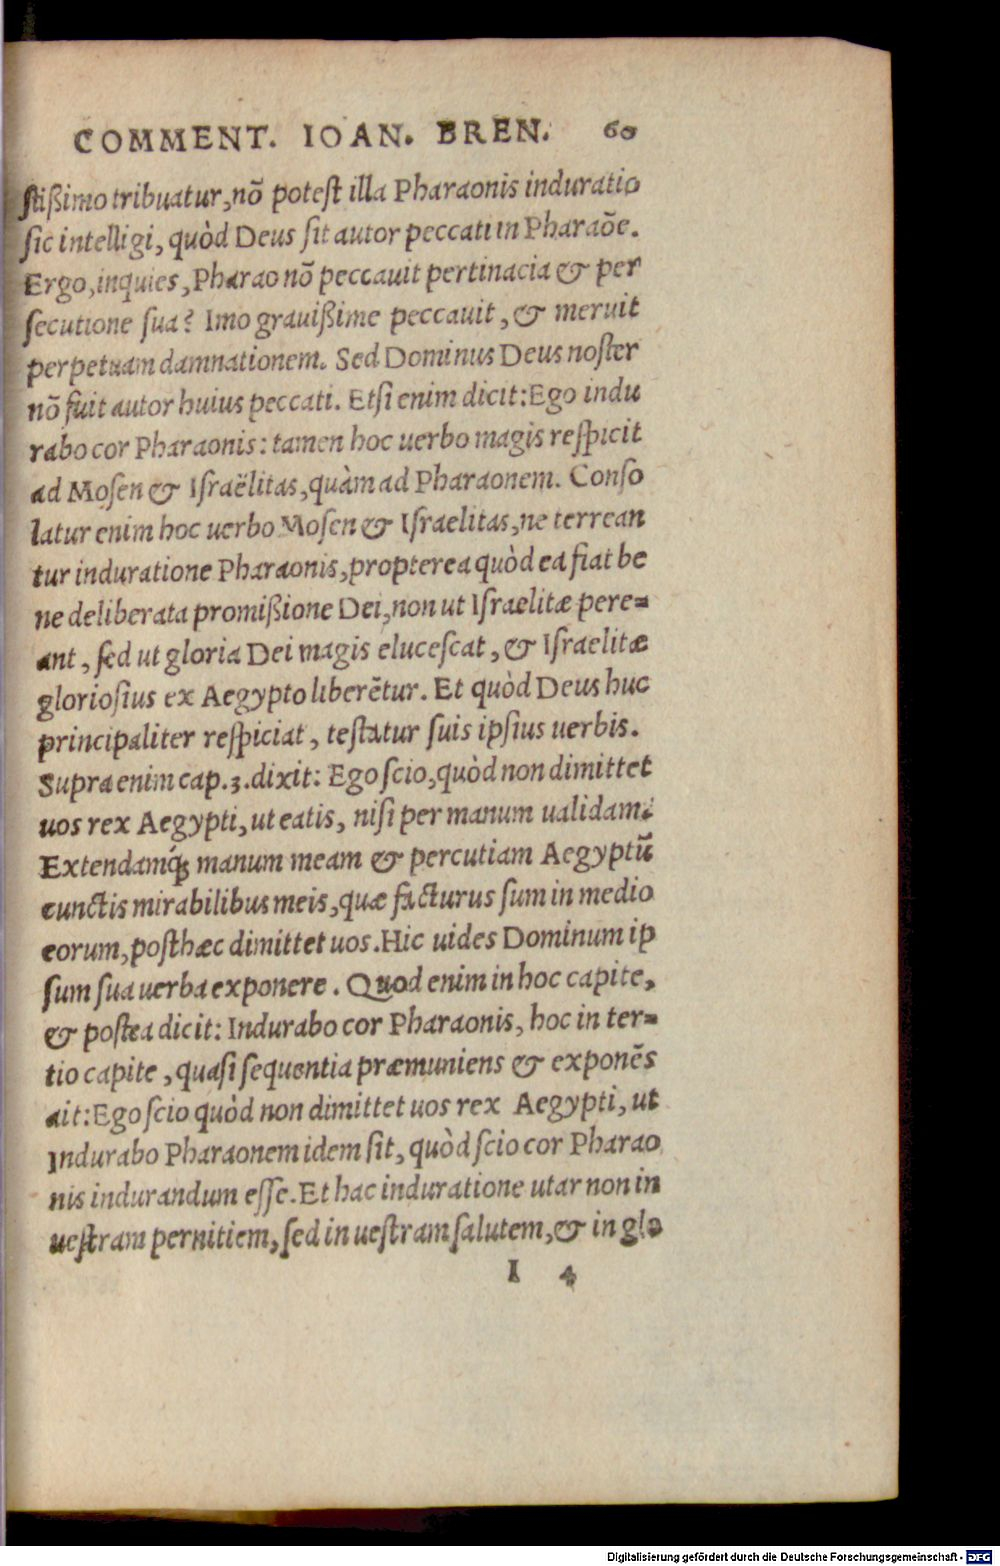 COMMENT. IOAN. BREN. 60
ſtißimo tribuatur, nõ poteſt illa Pharaonis induratio
ſic intelligi, quòd Deus ſit autor peccati in Pharaõe.
Ergo, inquies, Pharao nõ peccauit pertinacia & per
ſecutione ſua? Imo grauißime peccauit, & meruit
perpetuam damnationem. Sed Dominus Deus noſter
nõ fuit autor huius peccati. Etſi enim dicit: Ego indu
rabo cor Pharaonis: tamen hoc uerbo magis reſpicit
ad Moſen & Iſraëlitas, quàm ad Pharaonem. Conſo
latur enim hoc uerbo Moſen & Iſraelitas, ne terrean
tur induratione Pharaonis, propterea quòd ea fiat be
ne deliberata promißione Dei, non ut Iſraelitæ pere=
ant, ſed ut gloria Dei magis eluceſcat, & Iſraelitæ
glorioſius ex Aegypto liberẽtur. Et quòd Deus huc
principaliter reſpiciat, teſtatur ſuis ipſius uerbis.
Supra enim cap. 3. dixit: Ego ſcio, quòd non dimittet
uos rex Aegypti, ut eatis, niſi per manum ualidam.
Extendamq́; manum meam & percutiam Aegyptũ
cunctis mirabilibus meis, quæ facturus ſum in medio
eorum, poſthæc dimittet uos. Hic uides Dominum ip
ſum ſua uerba exponere. Quod enim in hoc capite,
& poſtea dicit: Indurabo cor Pharaonis, hoc in ter=
tio capite, quaſi ſequentia præmuniens & exponẽs
ait: Ego ſcio quòd non dimittet uos rex Aegypti, ut
Indurabo Pharaonem idem ſit, quòd ſcio cor Pharao
nis indurandum eſſe. Et hac induratione utar non in
ueſtram pernitiem, ſed in ueſtram ſalutem, & in glo
I 4
Digitalisierung gefördert durch die Deutsche Forschungsgemeinschaft - DFG